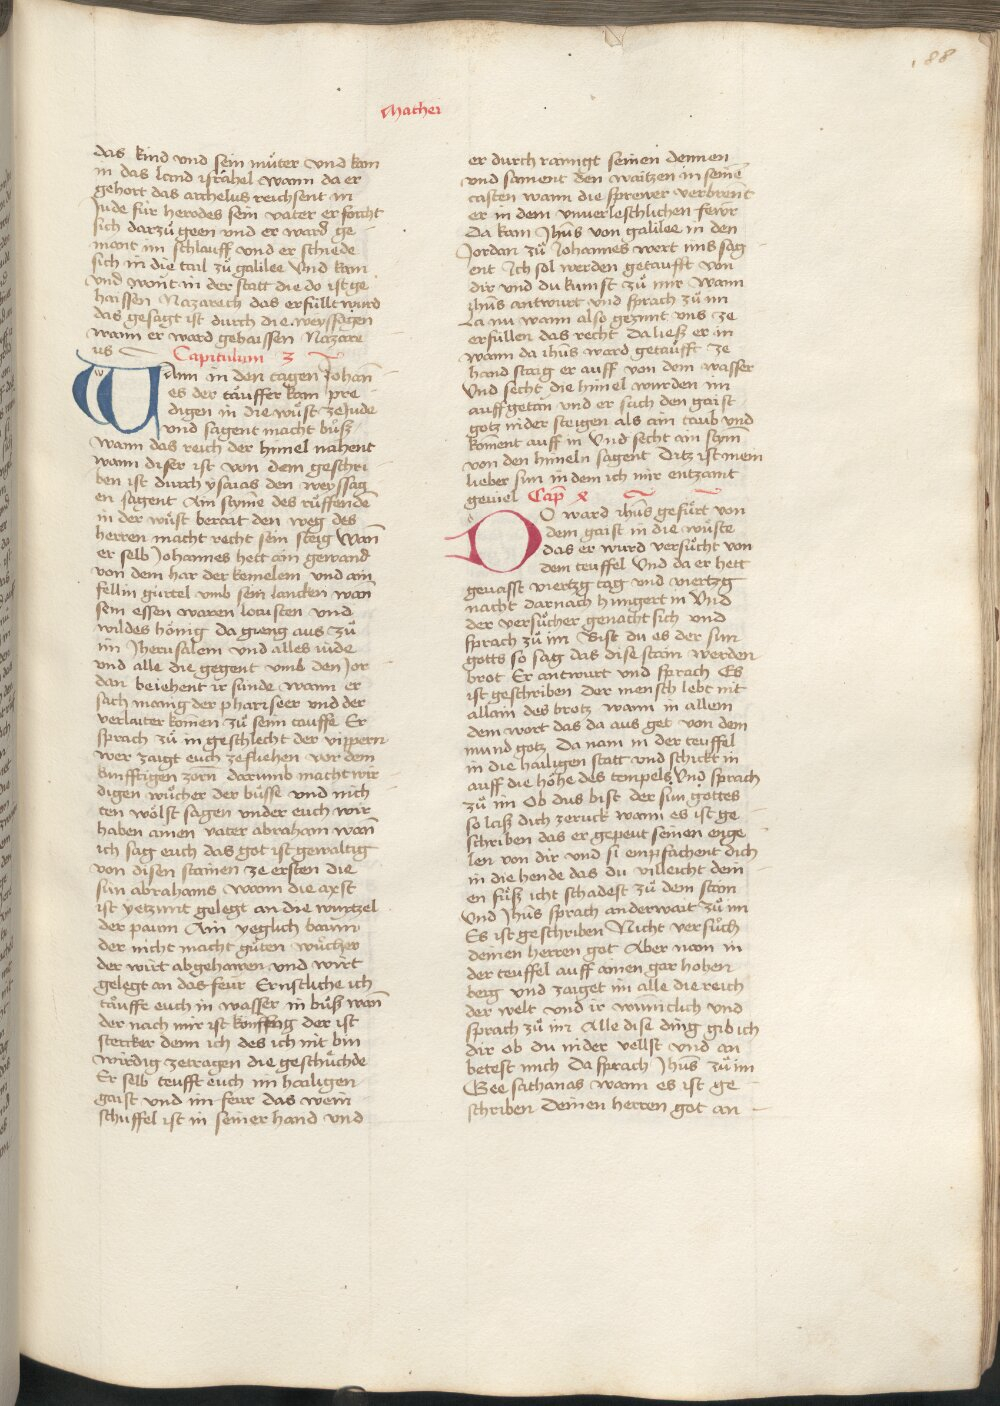 188
Mathei
das kind vnd sein můter vnd kam
in das land israhel wann da er
gehort das archelus reichsent in
Jude für herodes sein vater er forcht
sich darzů geen vnd er ward ge
mant im schlauff vnd er schiede
sich in die tail zů galilee Vnd kam
vnd wont in der statt die do ist ge
haissen Nazareth das erfüllt wurd
das gesagt ist durch die weyssagen
wann er ward gehaissen Nazare
us
Capitulum 3
Wann in den tagen Johan̄
es der tauffer kam pre
digen in die wůst ze Jude
vnd sagent macht bůß
wann das reich der himel nahent
wann diser ist von dem geschri
ben ist durch ysaias den weyssag
en sagent Ain stym̄e des růffenden̄
in der wůst berait den weg des
herren macht recht sein steig Wan̄
er selb Johannes hett ain gewand
von dem har der kemelein vnd ain
fellin gürtel vmb sein lancken wan̄
sein essen waren locusten vnd
wildes hönig da gieng aus zů
im Jherusalem vnd alles iude
vnd alle die gegent vmb den Jor
dan beiehent ir sünde wann er
sach manig der phariseer vnd der
verlaiter komen zů seim tauffe Er
sprach zů in geschlecht der vippern
wer zaigt euch zefliehen vor dem
kunfftigen zorn darumb macht wir
digen wůcher der bůsse vnd nich
ten wölst sagen vnder euch wir
haben ainen vater abraham wan̄
ich sag euch das got ist gewaltig
von disen stainen ze ersten die
sün abrahams wann die axst
ist yetzunt gelegt an die wurtzel
der paum Ain yeglich baum
der nicht macht gůten wůcher
der wirt abgehawen vnd wirt
gelegt an das feür Ernstliche ich
tauffe euch in wasser in bůß wan̄
der nach mir ist künfftig der ist
stercker denn ich des ich nit bin
wirdig zetragen die geschüchde
Er selb teufft euch im hailigen
gaist vnd im feur das wein
schuffel ist in seiner hand vnd
er durch rainigt seinen dennen
vnd sament den waitzen in sein̄e
casten wann die sprewer verbrent
er in dem vnuerleschlichen fewr
Da kam Jhus von galilee in den
Jordan zů Johannes wert ims sag
ent Ich sol werden getaufft von
dir vnd du kumst zů mir wann
ihus antwurt vnd sprach zů im
La nu wann also gezimt vns ze
erfüllen das recht da ließ er in
wann da ihūs ward getaufft ze
hand staig er auff von dem wasser
Vnd secht die himel wurden im
auff getan vnd er sach den gaist
gotz nider steigen als ain taub vnd
koment auff in Vnd secht ain stym
von den himeln sagent Ditz ist mein
lieber sun in dem ich mir entzamt
geuiel Cap̄ x
DO ward ihus gefürt von
dem gaist in die wüste
das er wurd versůcht von
dem teuffel Vnd da er hett
geuasst viertzg tag vnd viertzg
nacht darnach hungert in Vnd
der versůcher genacht sich vnd
sprach zů im Bist du es der sun
gotts so sag das dise stain werden
brot Er antwurt vnd sprach Es
ist geschriben der mensch lebt nit
allain des brotz wann in allem
dem wort das da aus get von dem
mund gotz Da nam in der teuffel
in die hailigen statt vnd schickt in
auff die höhe des tempels Vnd sprach
zů im Ob dus bist der sun gottes
so laß dich zeruck wann es ist ge
schriben das er gepeut seinen enge
len von dir vnd si emphachent dich
in die hende das du villeicht dein
en fůß icht schadest zů dem stain
Vnd Jhūs sprach anderwait zů im
Es ist geschriben Nicht versůch
deinen herren got Aber nam in
der teuffel auff ainen gar hohen
berg vnd zaiget im alle die reich
der welt vnd ir wunniclich vnd
sprach zů im Alle dise ding gib ich
dir ob du nider vellst vnd an
betest mich Da sprach Jhūs zů im
Gee sathanas wann es ist ge
schriben Deinen herren got an